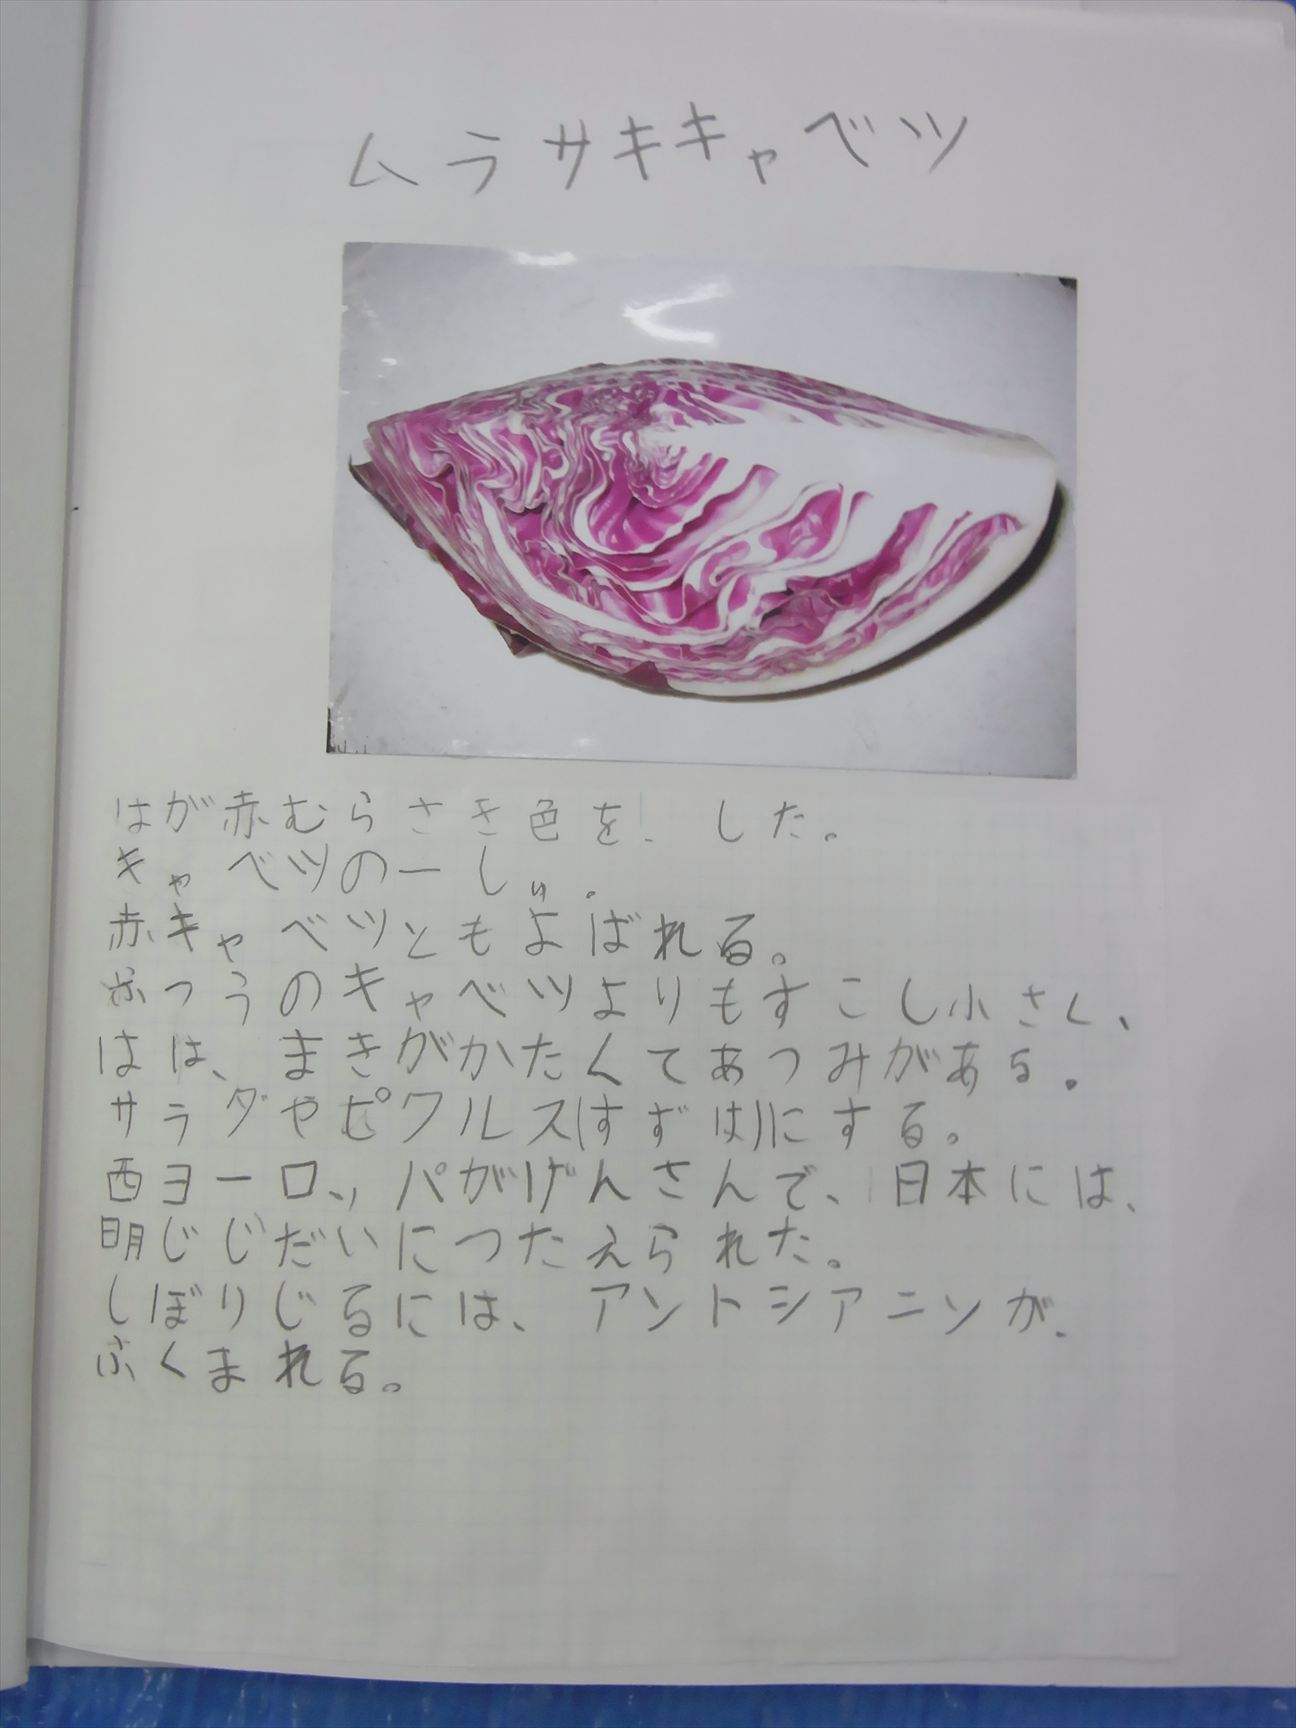 ムラサキキャベツ
はが赤むらさき色を、した。
キャベツの一しゅ。
赤キャベツともよばれる。
ふつうのキャベツよりもすこし小さく、
はは、まきがかたくてあつみがある。
サラダやピクルス(すずけ)にする。
西ヨーロッパがげんさんで、日本には、
明じじだいにつたえられた。
しぼりじるには、アントシアニンが、
ふくまれる。